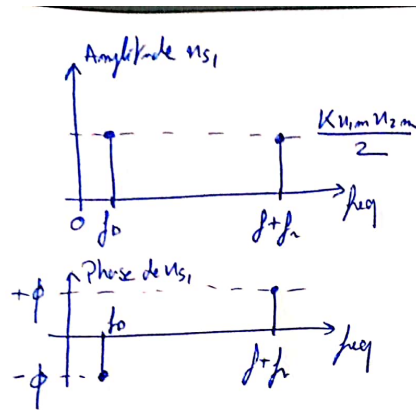 Amplitude us₁
K u₁ₘ u₂ₘ
2
0 f_D f+fᵣ freq
Phase de us₁
+φ
f_D
-φ
f+fᵣ freq